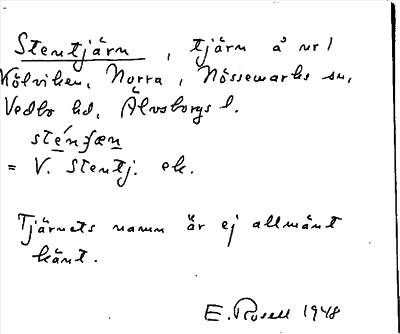 Stentjärn, tjärn å nr 1
Kölviken, Norra, Nössemarks sn,
Vedbo hd, Älvsborgs l.
sténȷæn
= V. Stentj. ek.
Tjärnets namn är ej allmänt
känt.
E. Rosell 1948